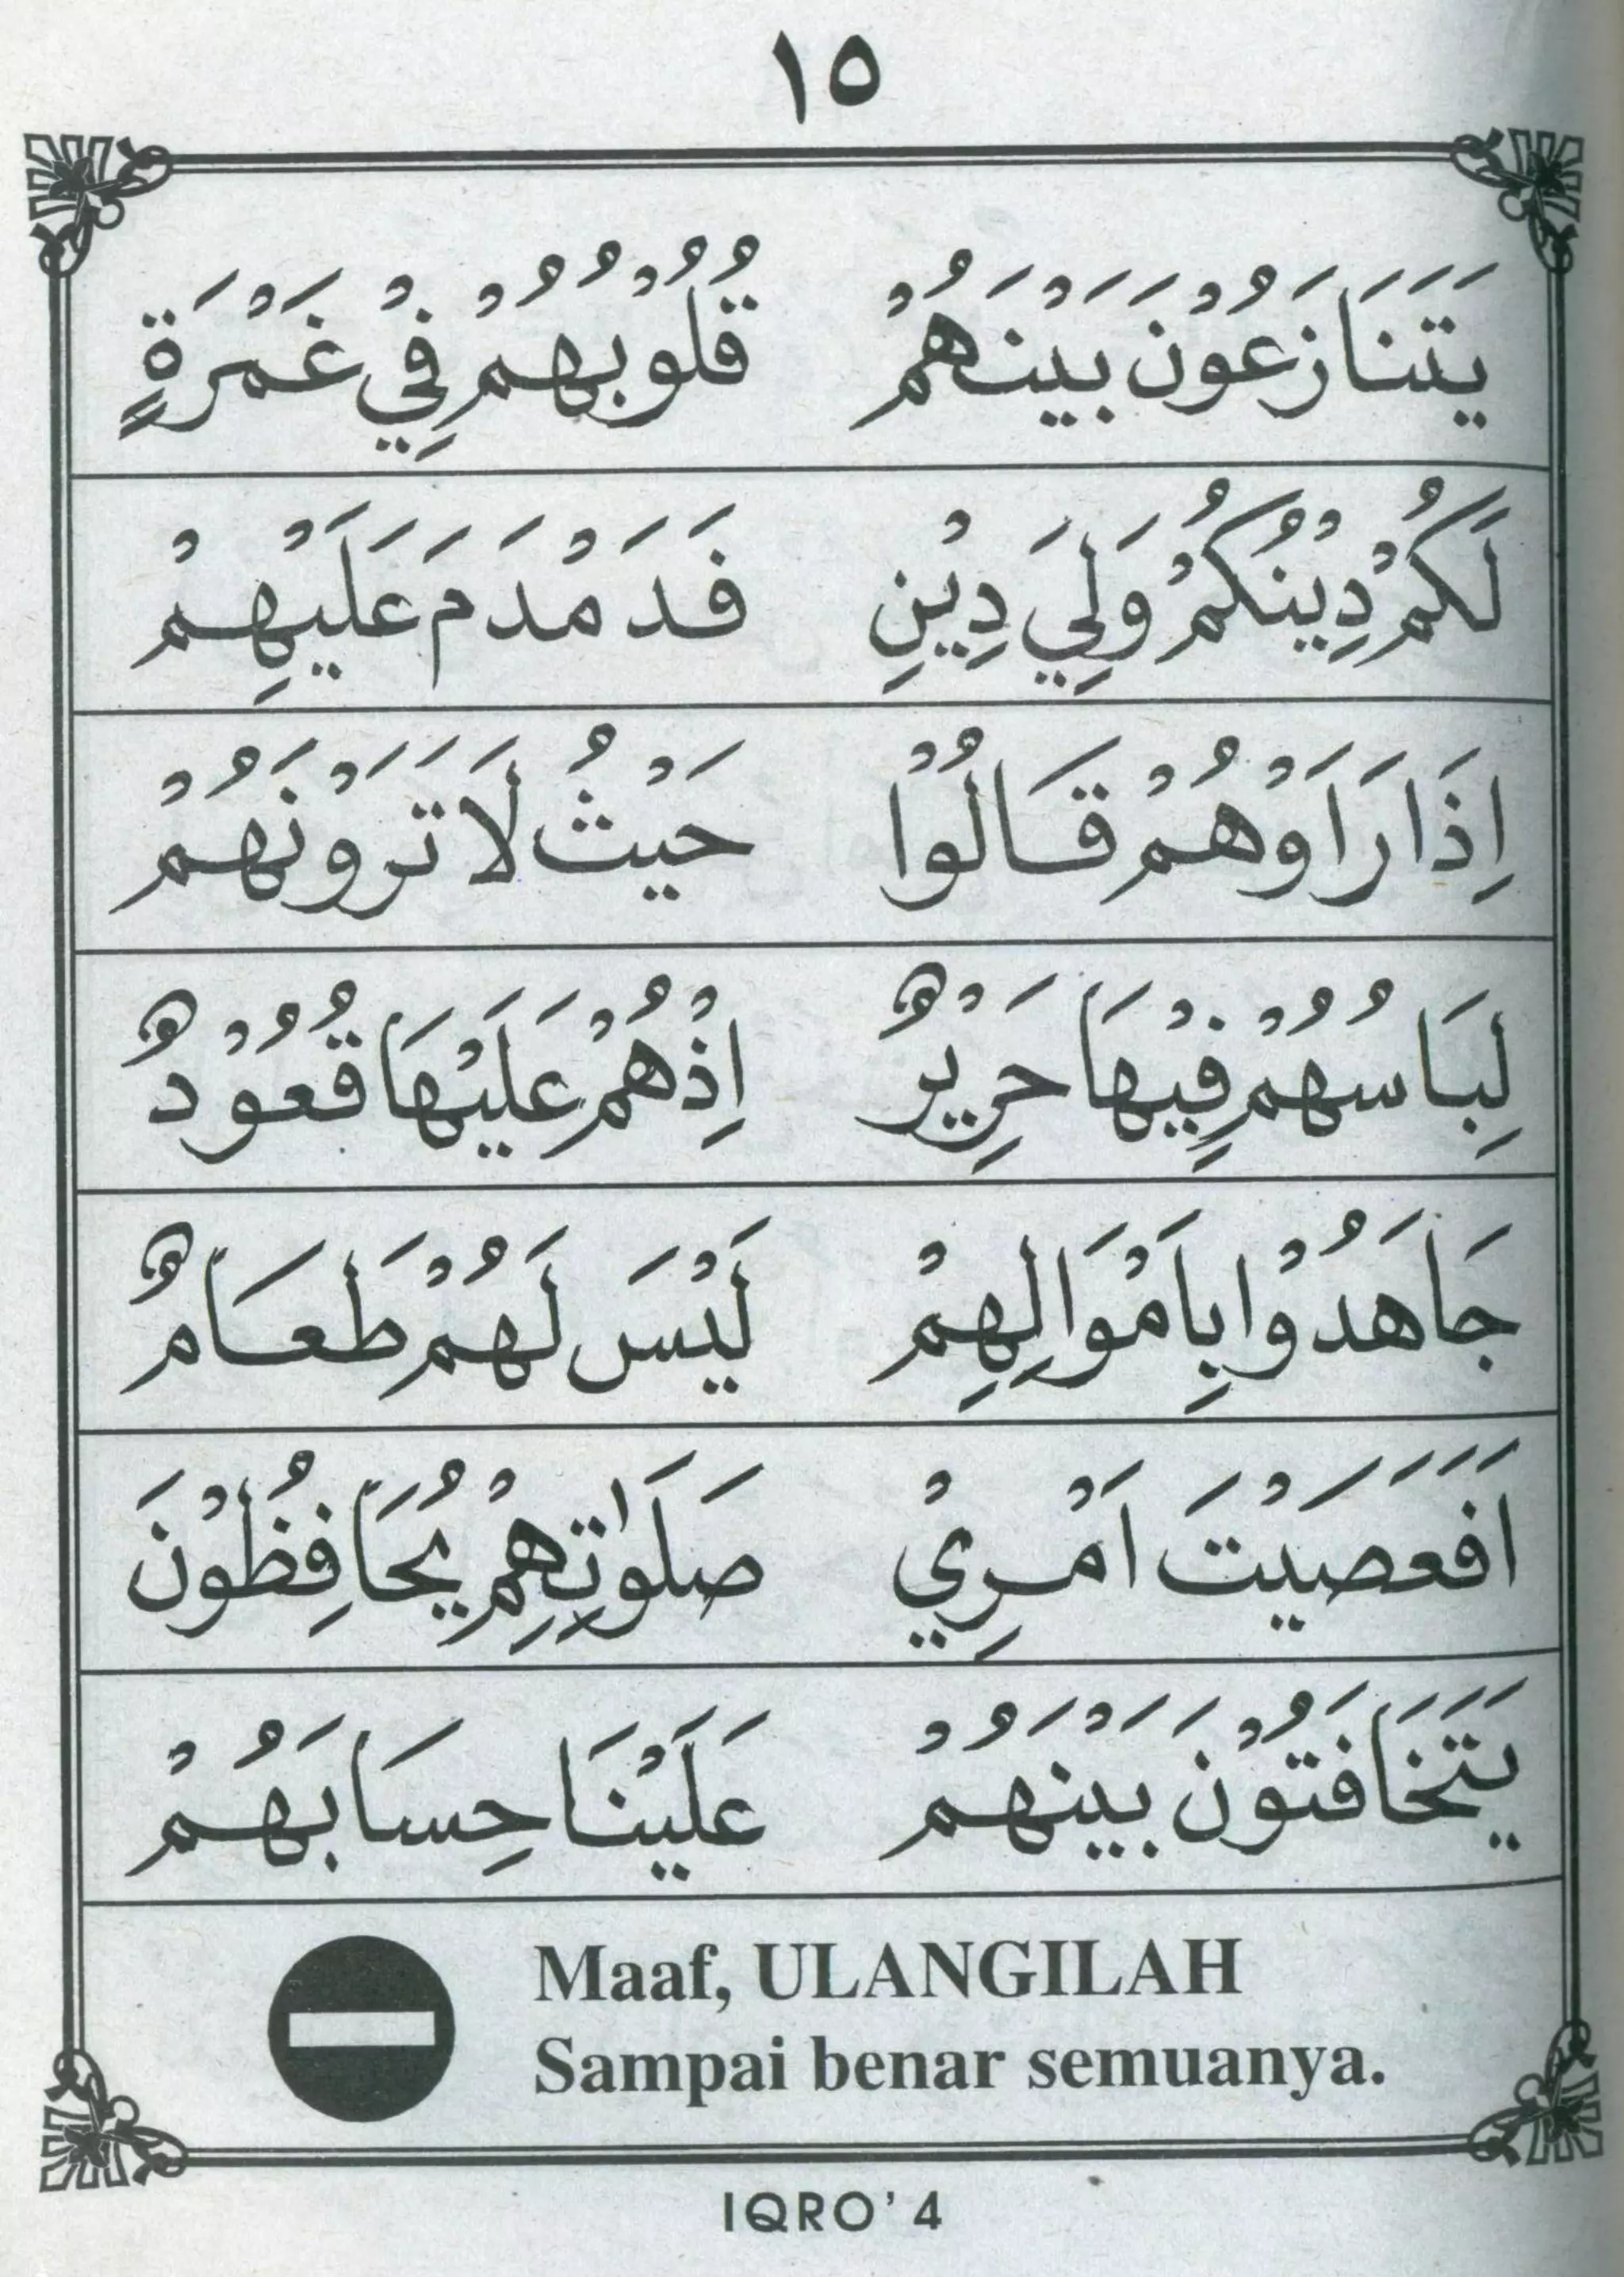 ١٥
يَتَنَازَعُوْنَ بَيْنَهُمْ قُلُوْبُهُمْ فِيْ غَمْرَةٍ
لَكُمْ دِيْنُكُمْ وَلِيَ دِيْنِ فَدَمْدَمَ عَلَيْهِمْ
اِذَا رَاَوْهُمْ قَالُوْا حَيْثُ لَا تَرَوْنَهُمْ
لِبَاسُهُمْ فِيْهَا حَرِيْرٌ اِذْهُمْ عَلَيْهَا قُعُوْدٌ
جَاهَدُوْا بِاَمْوَالِهِمْ لَيْسَ لَهُمْ طَعَامٌ
اَفَعَصَيْتَ اَمْرِيْ صَلَوٰتِهِمْ يُحَافِظُوْنَ
يَتَخَافَتُوْنَ بَيْنَهُمْ عَلَيْنَا حِسَابَهُمْ
Maaf, ULANGILAH
Sampai benar semuanya.
IQRO' 4